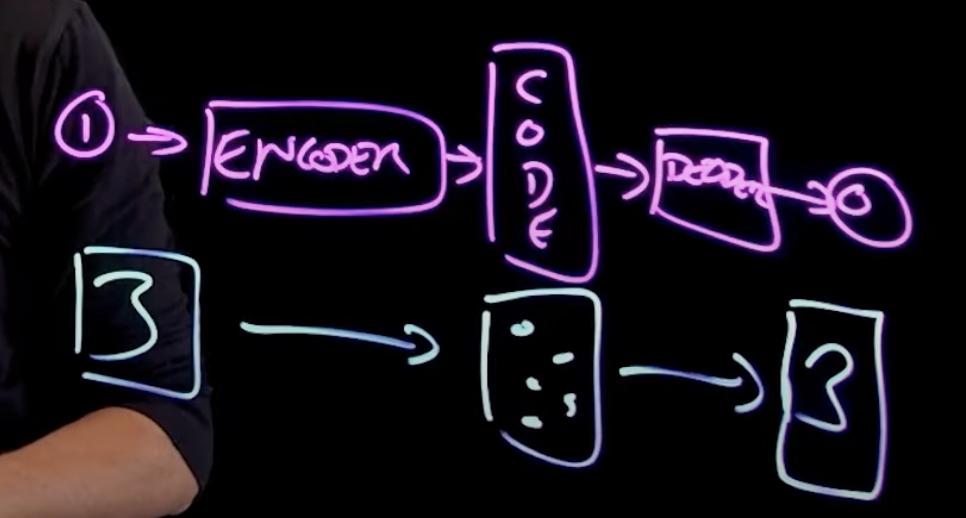 I → ENCODER → CODE → DECODER → O
3 → → 3